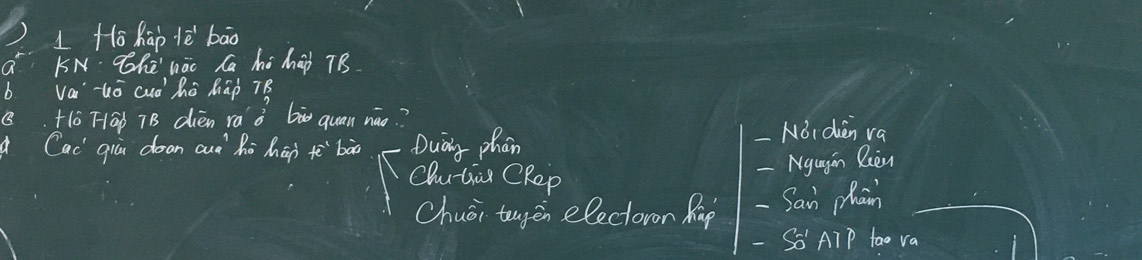 1 Hô hấp tế bào
a KN: Thế nào là hô hấp TB
b. Vai trò của hô hấp TB
c. Hô Hấp TB diễn ra ở bào quan nào?
d Các giai đoạn của hô hấp tế bào
- Đường phân
Chu trình Crep
Chuỗi truyền electoron hấp
- Nơi diễn ra
- Nguyên liệu
- Sản phẩm
- Số ATP tạo ra